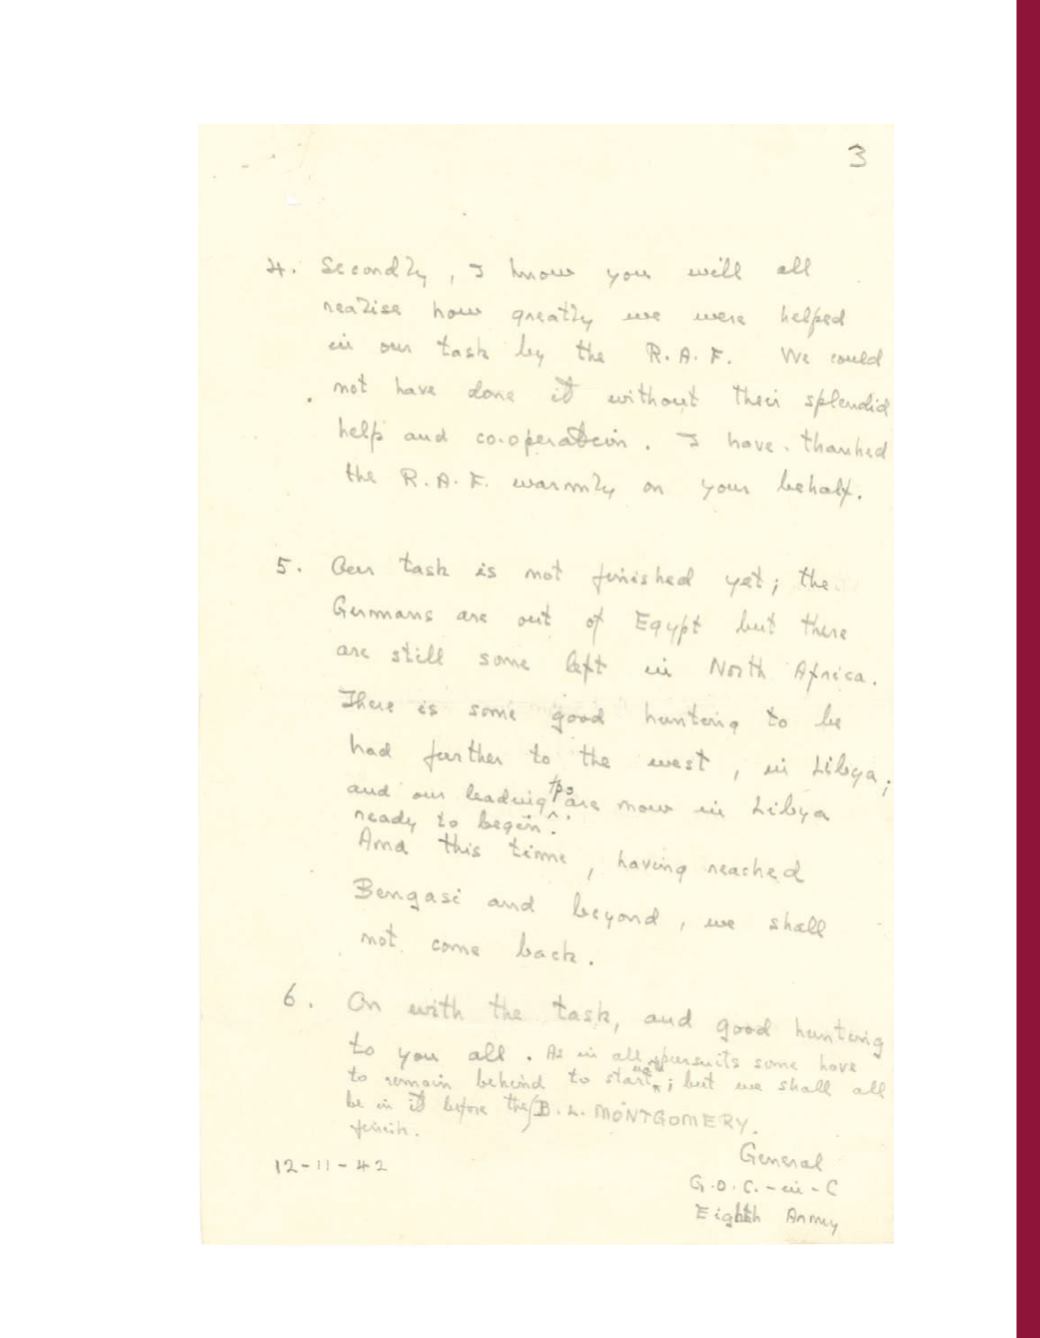 3
4. Secondly, I know you will all
realise how greatly we were helped
in our task by the R.A.F. We could
not have done it without their splendid
help and co.operation. I have thanked
the R.A.F. warmly on your behalf.
5. Our task is not finished yet; the
Germans are out of Egypt but there
are still some left in North Africa.
There is some good hunting to be
had further to the west, in Libya;
and our leading tps are now in Libya
ready to begin.
And this time, having reached
Bengasi and beyond, we shall
not come back.
6. On with the task, and good hunting
to you all. As in all pursuits some have
to remain behind to start; but we shall all
be in it before the B. L. MONTGOMERY.
finish.
General
12-11-42
G.O.C.-in-C
Eighth Army